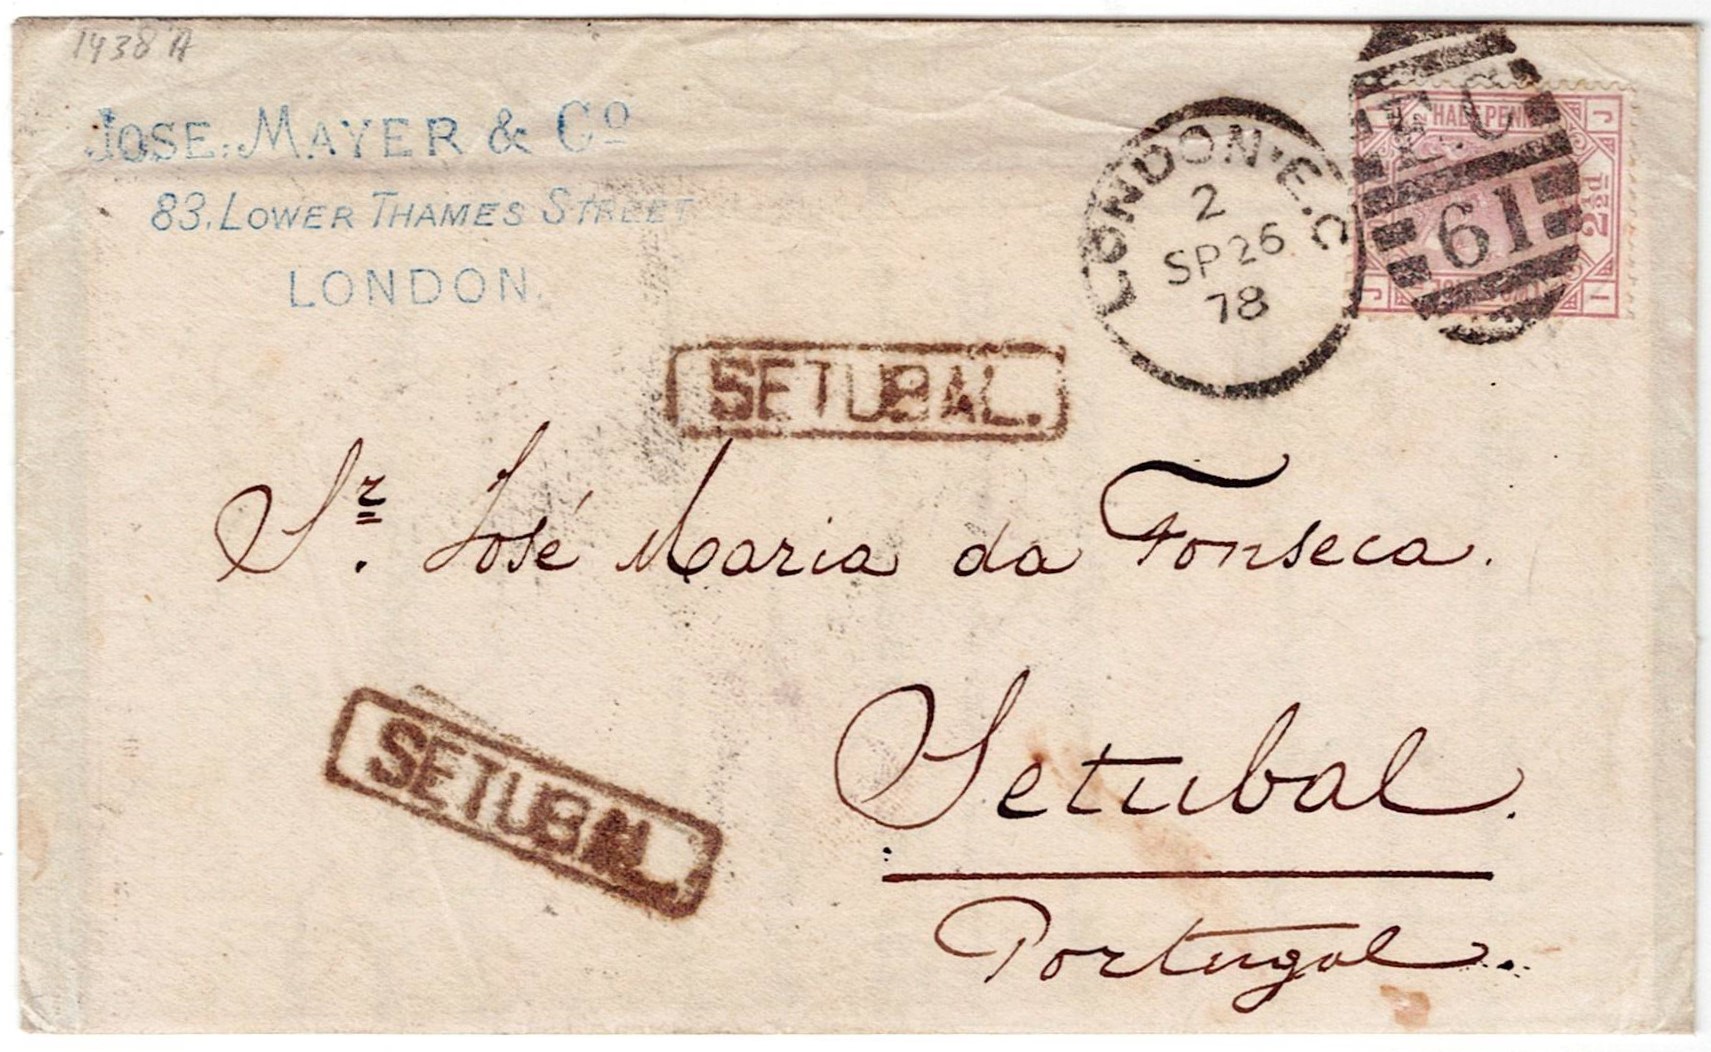 1438 A
JOSE. MAYER & Co
83. LOWER THAMES STREET
LONDON.
LONDON·E.C
2
SP 26
78
E.C
61
J
HALFPENNY
2½d
J
I
SETUBAL.
Sr. José Maria da Fonseca.
SETUBAL.
Setubal.
Portugal.